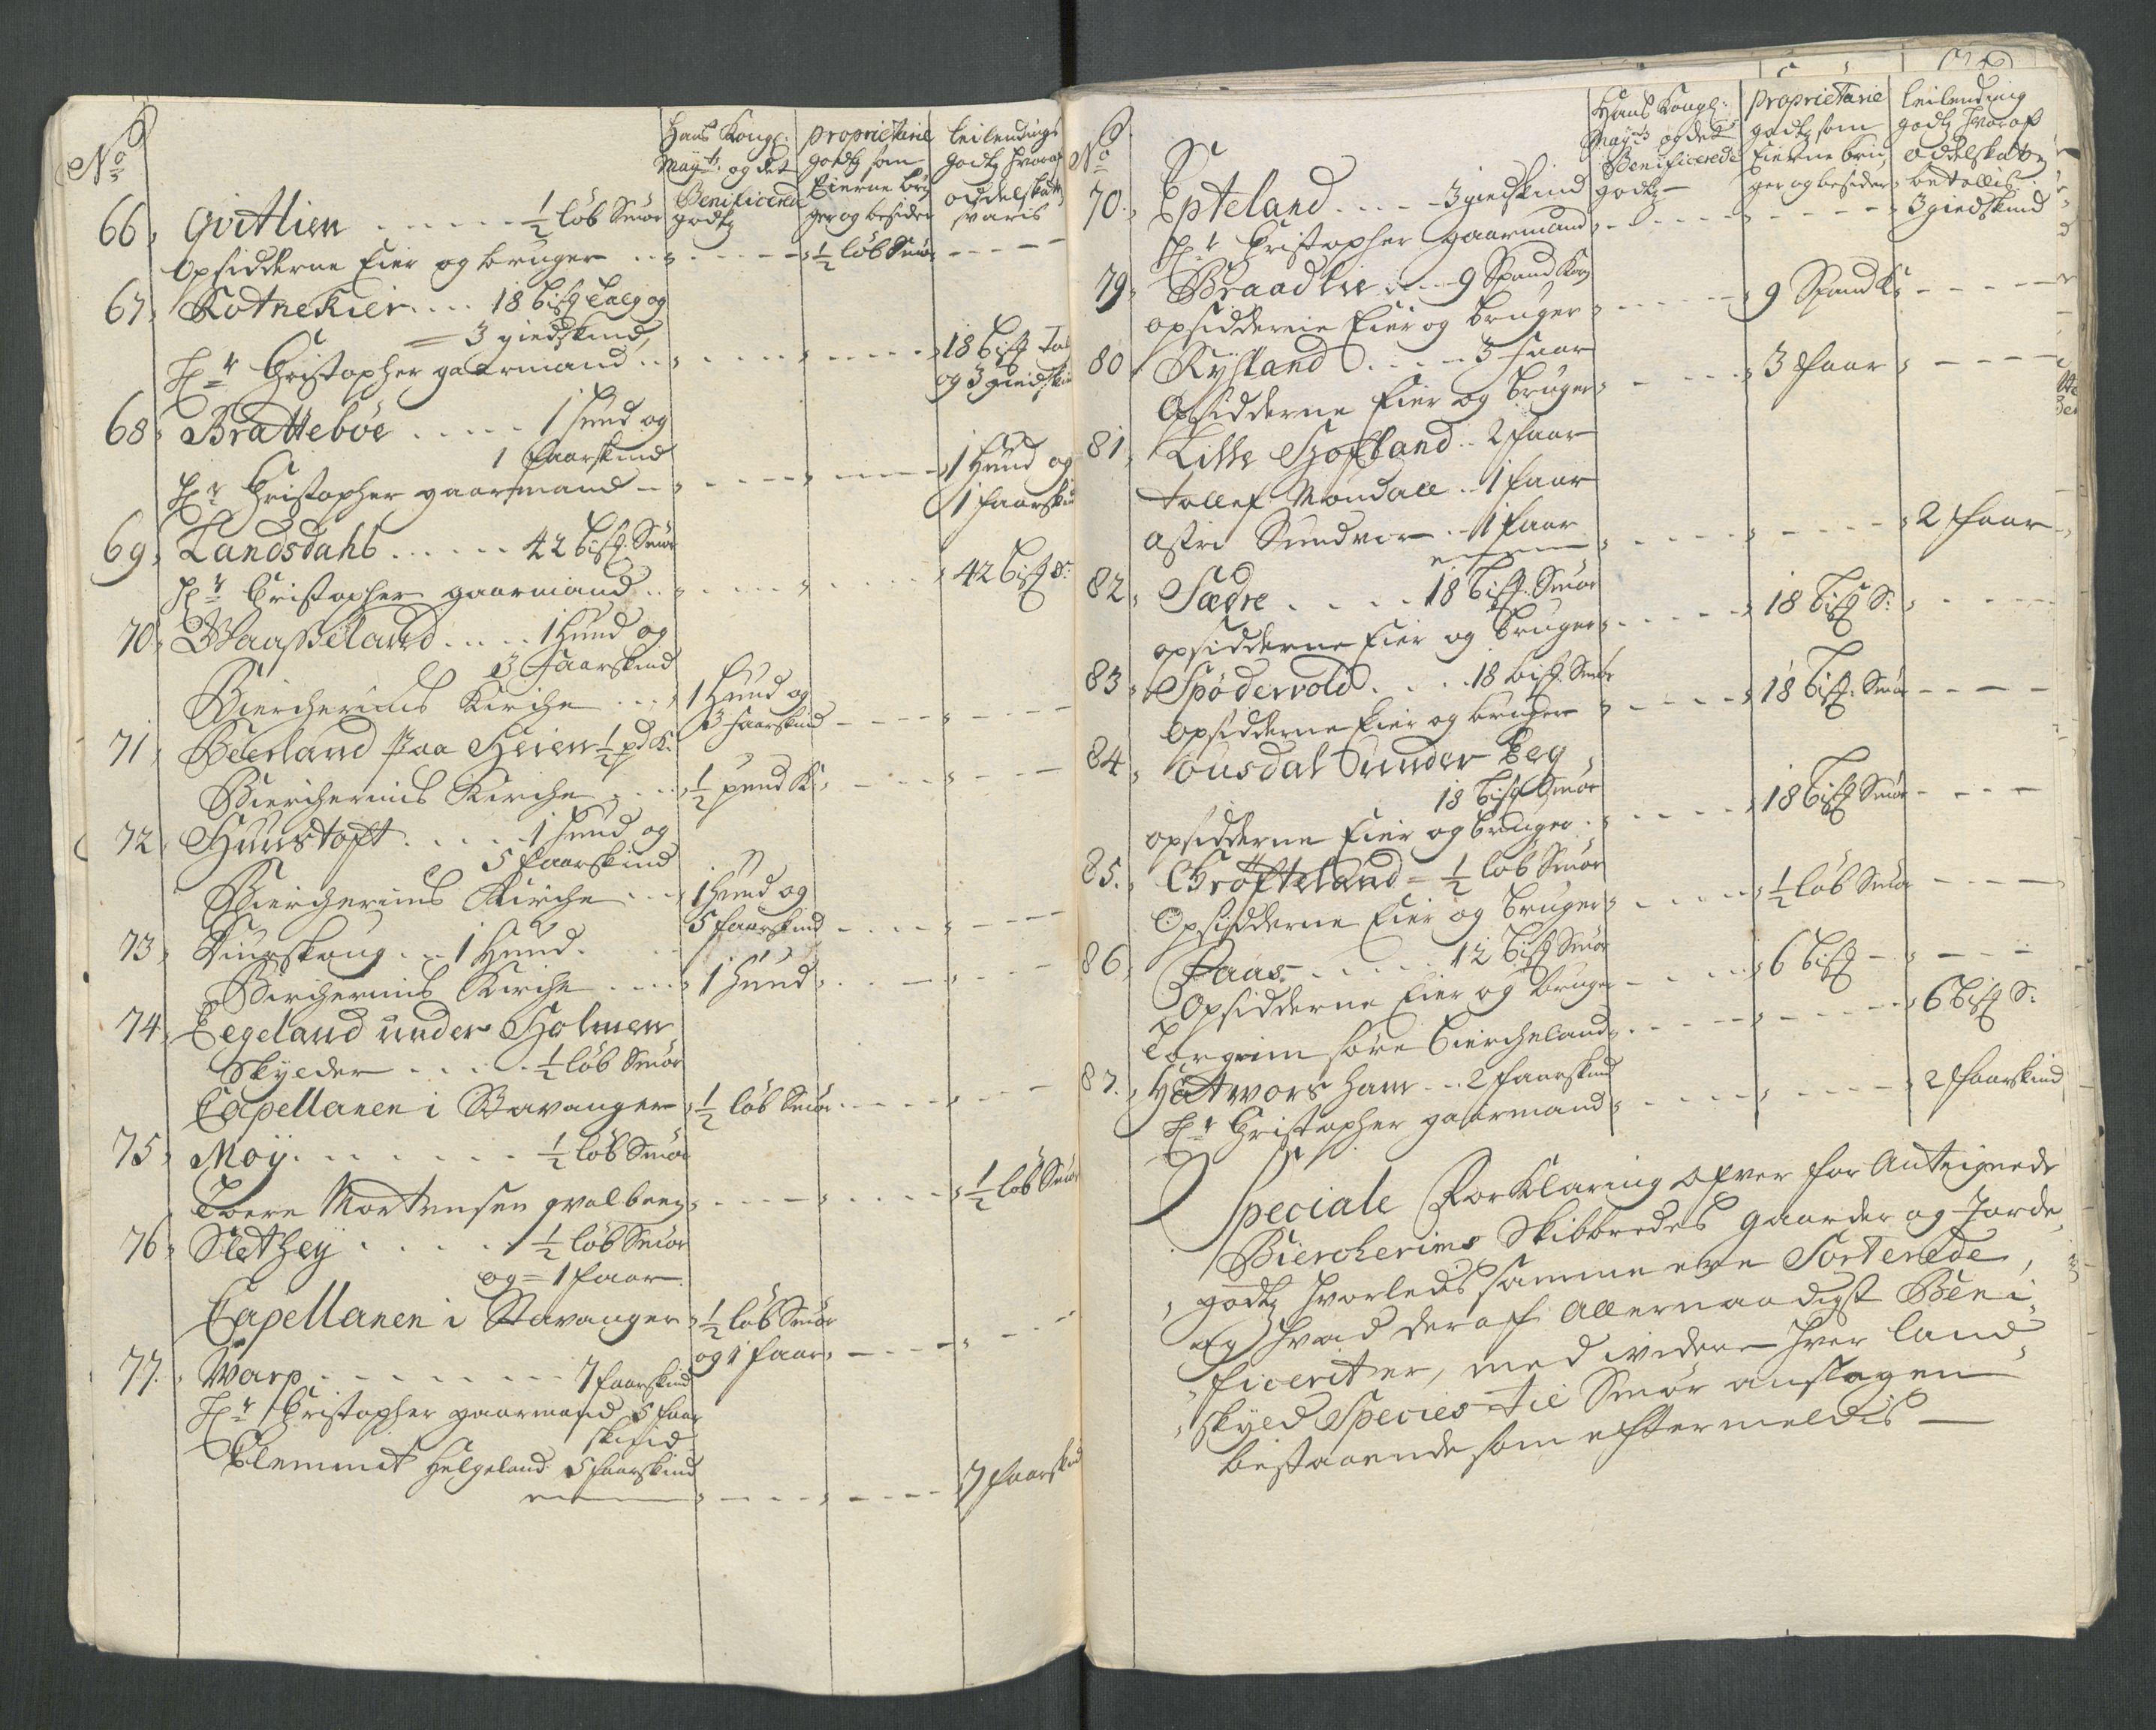 No
Hans Kongl: Mayts: og det Benificerede godtz
proprietarie godtz som Eierne brüger og besider
Leilendings godtz hvoraf oddelskatt svaris
66, Gvitlien . . . . . ½ löb Smör
Opsidderne Eier og bruger . . ½ löb Smör
67, Rotnekier . . . 18 bisß Talg og
= 3 giedskind,
Hr Christopher gaarmand . . 18 bisß Tal
og 3 giedskin
68, Bratteböe . . . . . 1 hund og
1 faarskind
Hr Christopher gaarmand - - 1 Hund og
1 faarskin
69, Landsdahl . . . . . . 42 bisß Smör
Hr Christopher gaarmand . . 42 bisß S:
70, Waasseland . . . . 1 Hund og
3 faarskind
Biercherims Kirche . . . 1 Hund og
3 faarskind
71, Beerland paa Heien ½ pd K:
Biercherims Kirche . . . ½ pund K:
72, Hunstoft . . . . 1 hund og
5 faarskind
Biercherims Kirche . . . 1 Hund og
5 faarskind
73, Diurskoug . . . 1 Hund.
Bircherims Kirche . . . . 1 Hund
74, Eegeland under Holmen
Skylder . . . . . ½ löb Smör
Capellanen i Stavanger ½ löb Smör
75, Moÿ . . . . . . . ½ löb Smör
Toere Mortensen gvalbeen . . ½ löb Smör
76, Sletheÿ . . . . . ½ löb Smör
og = 1 faar
Capellanen i Stavanger ½ löb Smör
og 1 faar
77. Warp . . . . . . . 7 faarskind
Hr Christopher gaarmand 5 faar
skind
Clemmit Helgeland 5 faarskind
7 faarskind
No
Hans Kongl: Mayts og det Benificerede godtz
proprietarie godtz som Eierne brüger og besider
leilending godtz hvoraf oddelskatt betallis
70. Epteland . . . . . 3 giedskind
Hr Christopher gaarmand . . 3 giedskind
79, Braadlie . . . . 9 Spand Korn
opsidderne Eier og bruger . . 9 Spand K:
80 Rÿsland . . . . 3 faar
Opsidderne Eier og bruger 3 faar
81, Lille Hofland . . 2 faar
tollef Mondall . . 1 faar
astri Sundvor . . 1 faar
2 faar
82, Sædre . . . . 18 bisß Smör
opsidderne Eier og bruger . . 18 bisß S:
83, Spödervold . . . . 18 bisß Smör
opsidderne Eier og bruger 18 bisß: Smör
84, ousdal under Eeg
18 bisß Smör
opsidderne Eier og bruger . 18 bisß Smör
85. Gröfteland = ½ löb Smör
Opsidderne Eier og bruger ½ löb Smör
86, Faas . . . . . 12 bisß Smör
Opsidderne Eier og bruger 6 bisß
Torgrim söre biercheland 6 bisß S:
87. Hatwors ham . . 2 faarskind
Hr Christopher gaarmand 2 faarskind
Speciale Forklaring ofver for Antegnede
Biercherims Skibbredes gaarder og Jorde
godtz hvorledes samme ere Sorterede,
og hvad deraf Allernaadigst Beni
ficerit er, med videre hver land
skyld Species til Smör anslagen
bestaaende som eftermeldis —